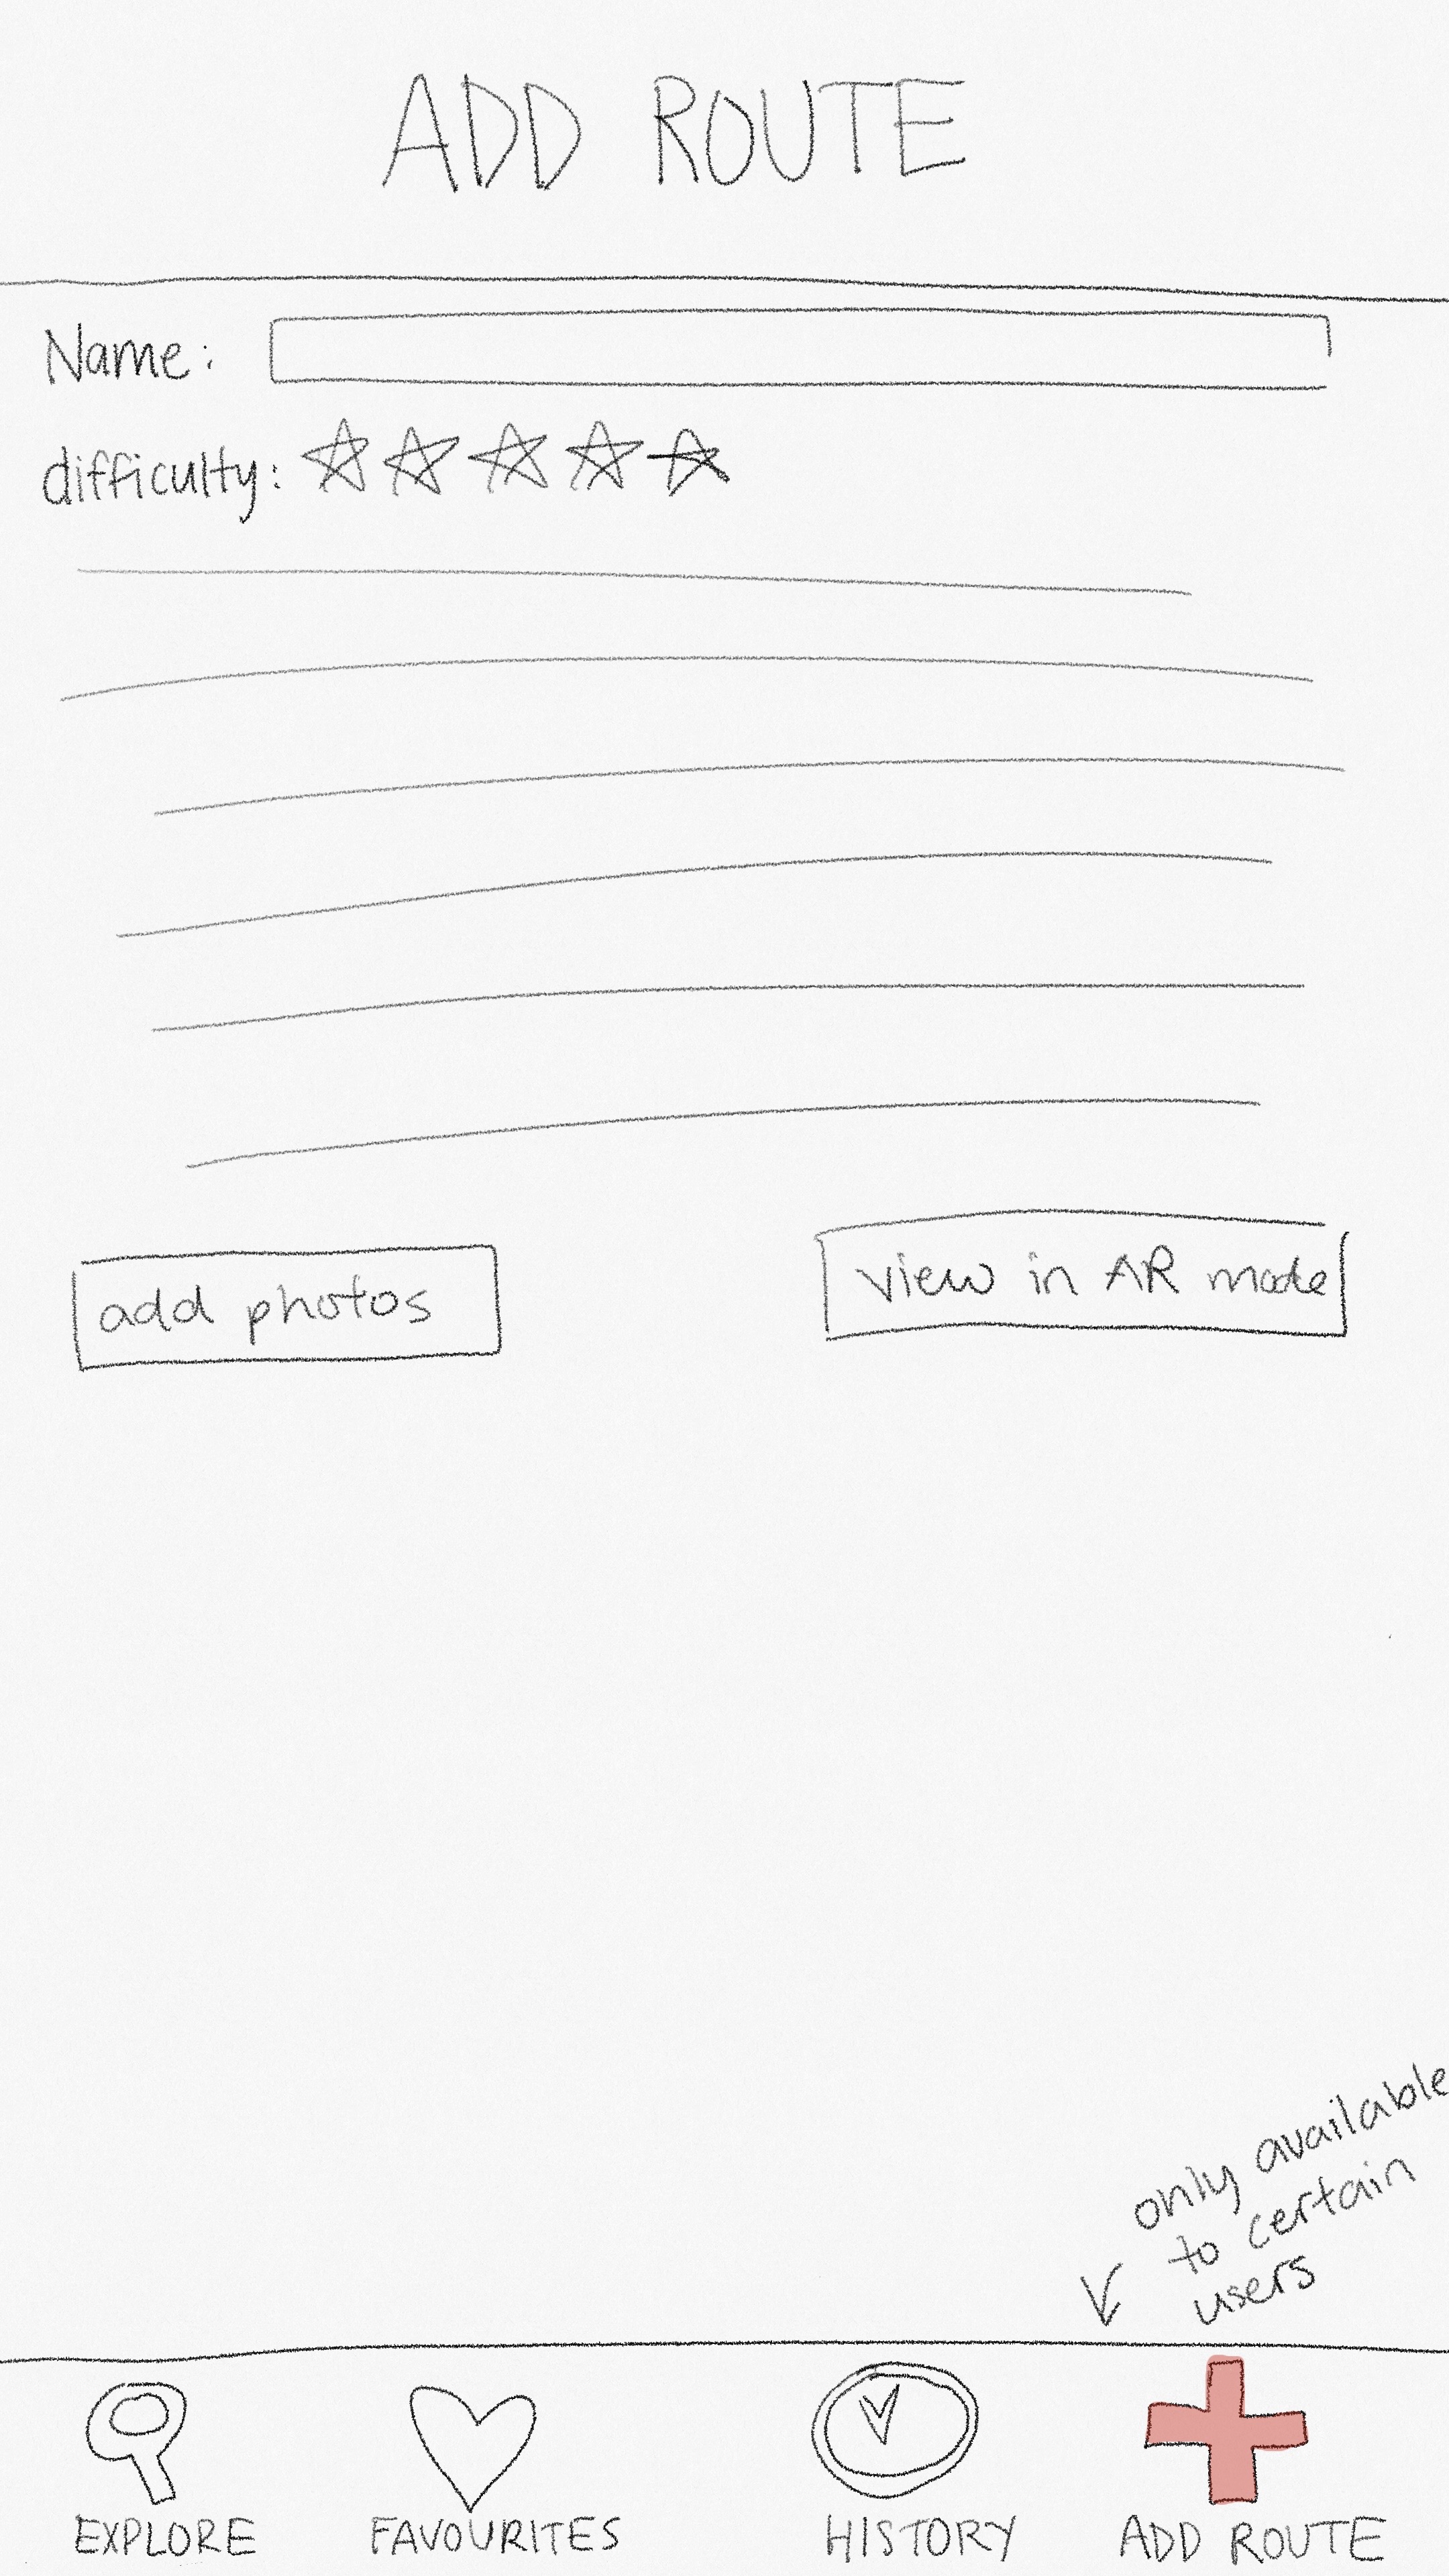 ADD ROUTE
Name:
difficulty:
add photos
view in AR mode
only available
to certain
users
EXPLORE
FAVOURITES
HISTORY
ADD ROUTE